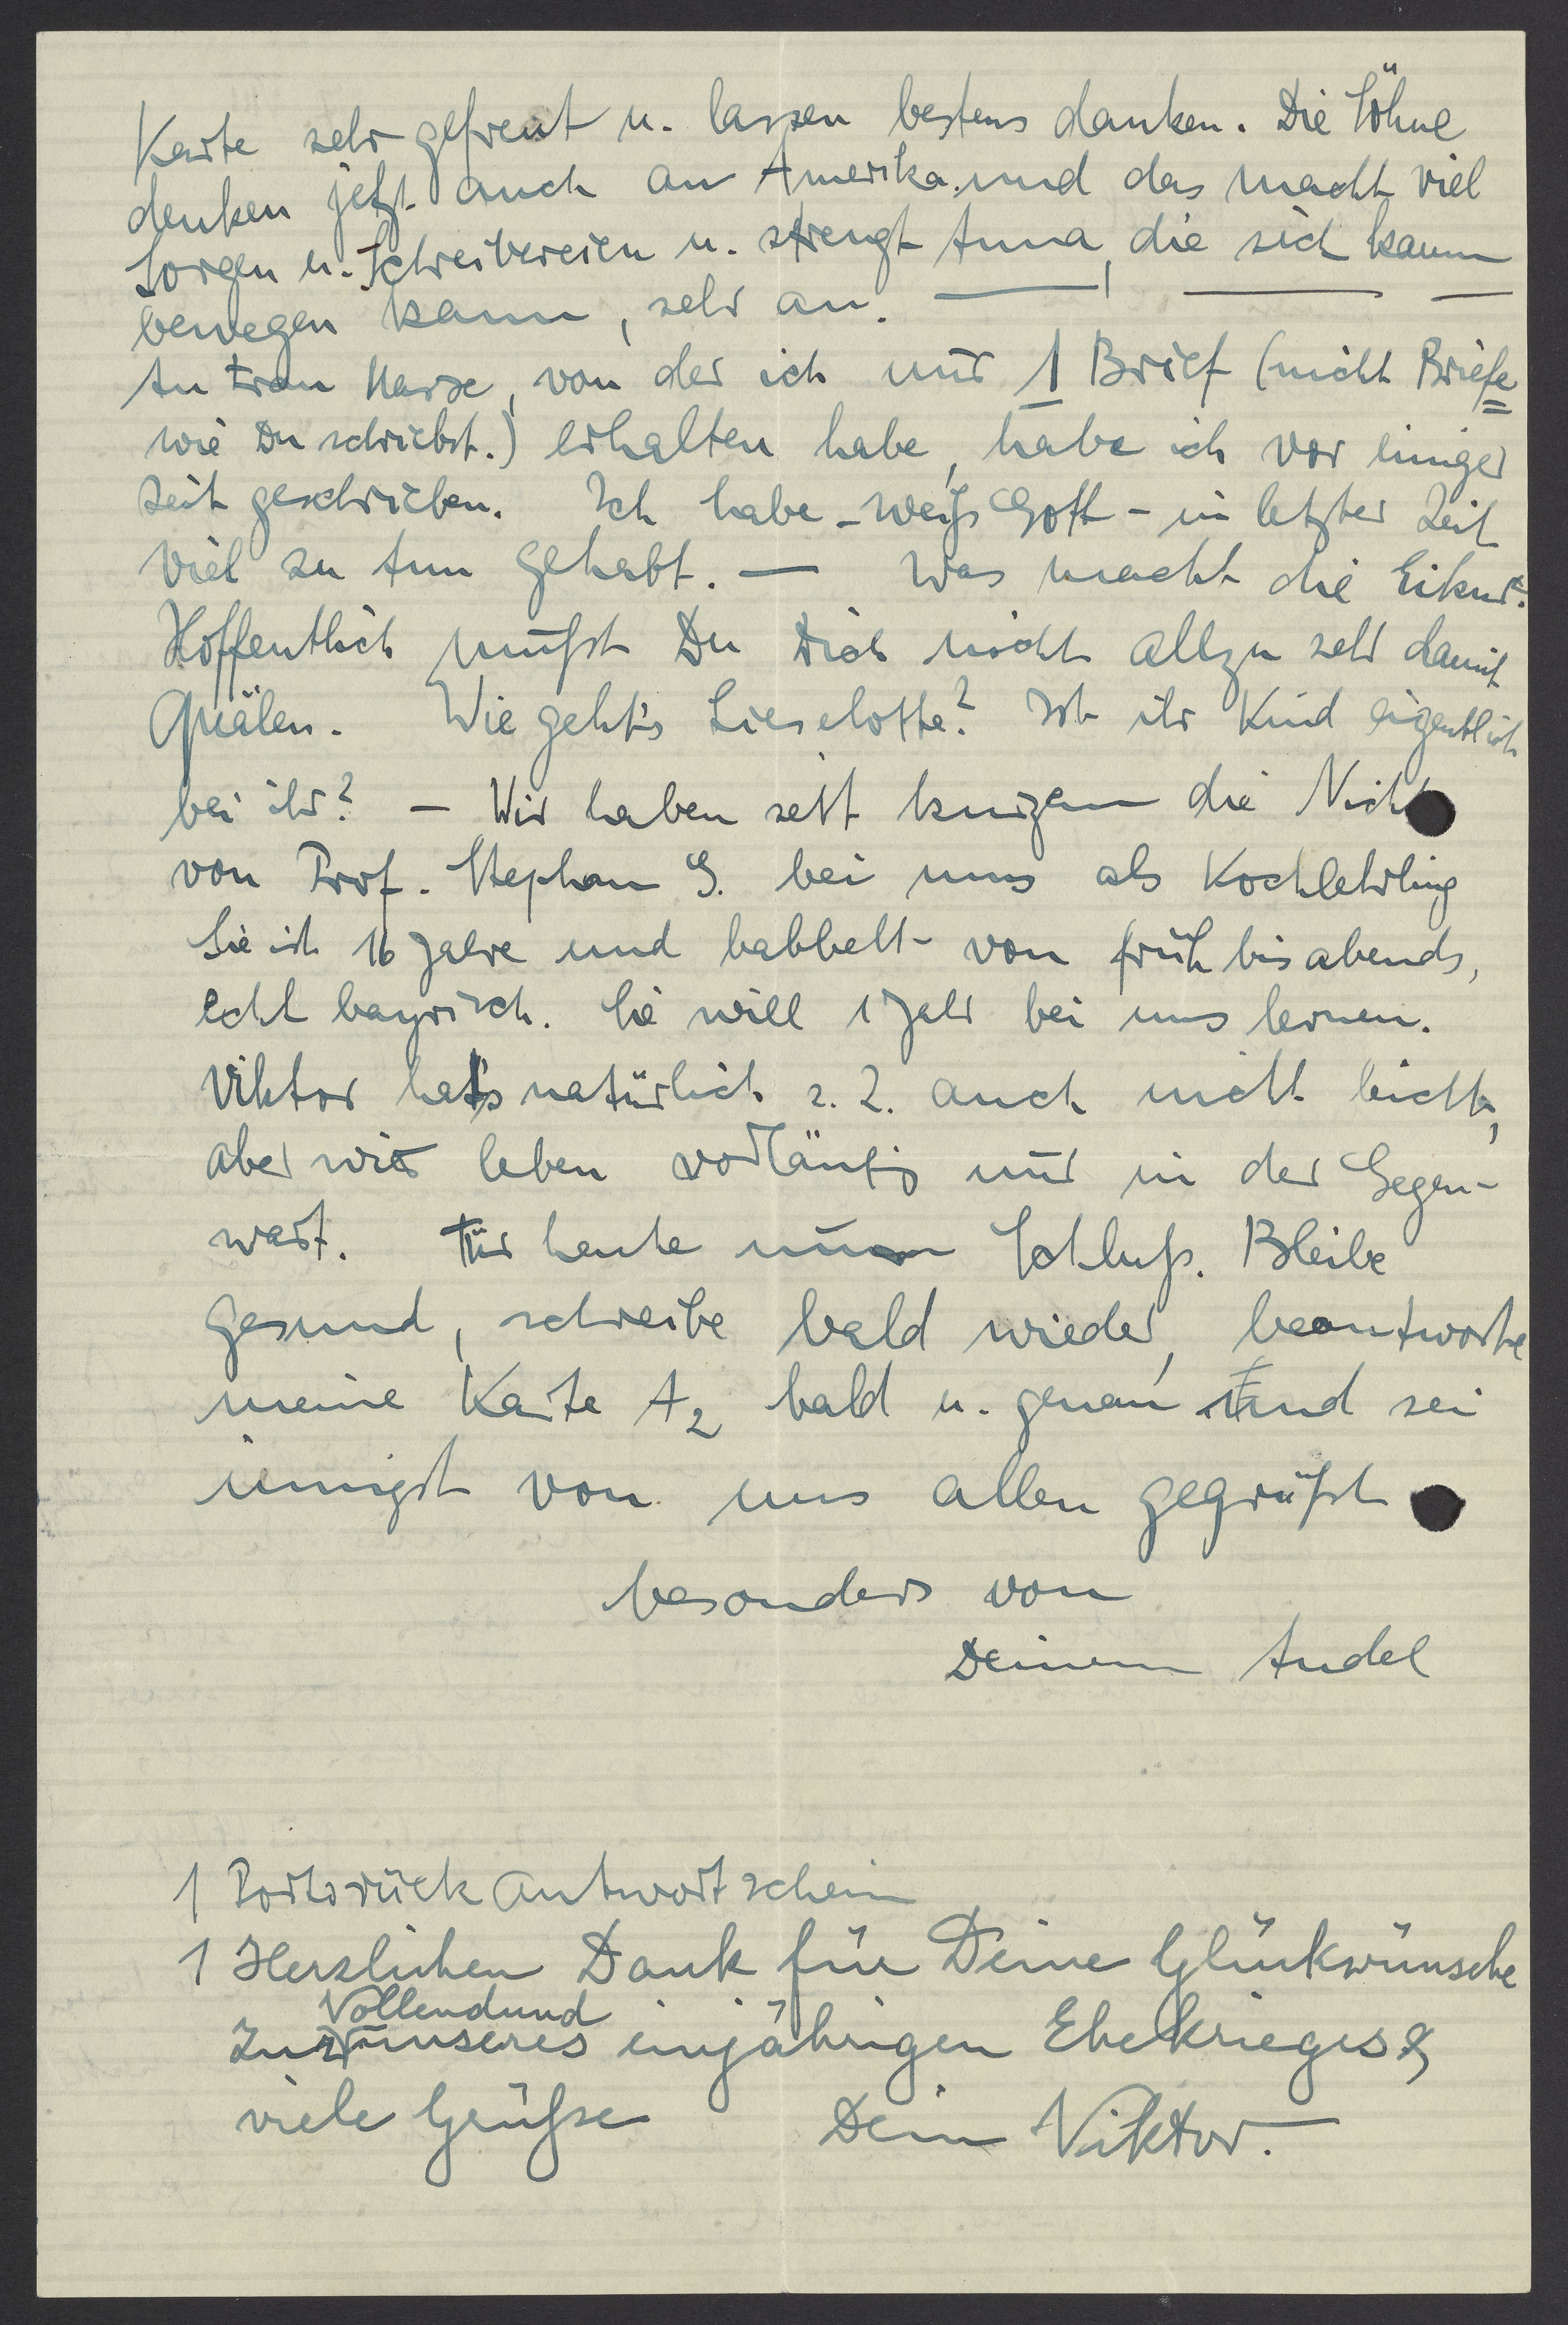 Karte sehr gefreut u. lassen bestens danken. Die Söhne
denken jetzt auch an Amerika und das macht viel
Sorgen u. Schreibereien u. strengt Anna, die sich kaum
bewegen kann, sehr an. —— —— —
An Frau Marx, von der ich nur 1 Brief (nicht Briefe
wie Du schriebst.) erhalten habe, habe ich vor einiger
Zeit geschrieben. Ich habe - weiß Gott - in letzter Zeit
viel zu tun gehabt. — Was macht die
Hoffentlich mußt Du Dich nicht allzu sehr damit
quälen. Wie geht's Lieselotte? Ist ihr Kind eigentlich
bei ihr? — Wir haben seit kurzem die Nichte
von Prof. Stephan G. bei uns als Kochlehrling
Sie ist 16 Jahre und babbelt von früh bis abends,
echt bayrisch. Sie will 1 Jahr bei uns lernen.
Viktor hat's natürlich z. Z. auch nicht leicht,
aber wir leben vorläufig nur in der Gegen-
wart. Für heute nun Schluß. Bleibe
gesund, schreibe bald wieder, beantworte
meine Karte A2 bald u. genau und sei
innigst von uns allen gegrüßt
besonders von
Deinem Andel
1 Portorückantwortschein
1 Herzlichen Dank für Deine Glückwünsche
Vollendund
zur unseres einjährigen Ehekrieges &
viele Grüße Dein Viktor.